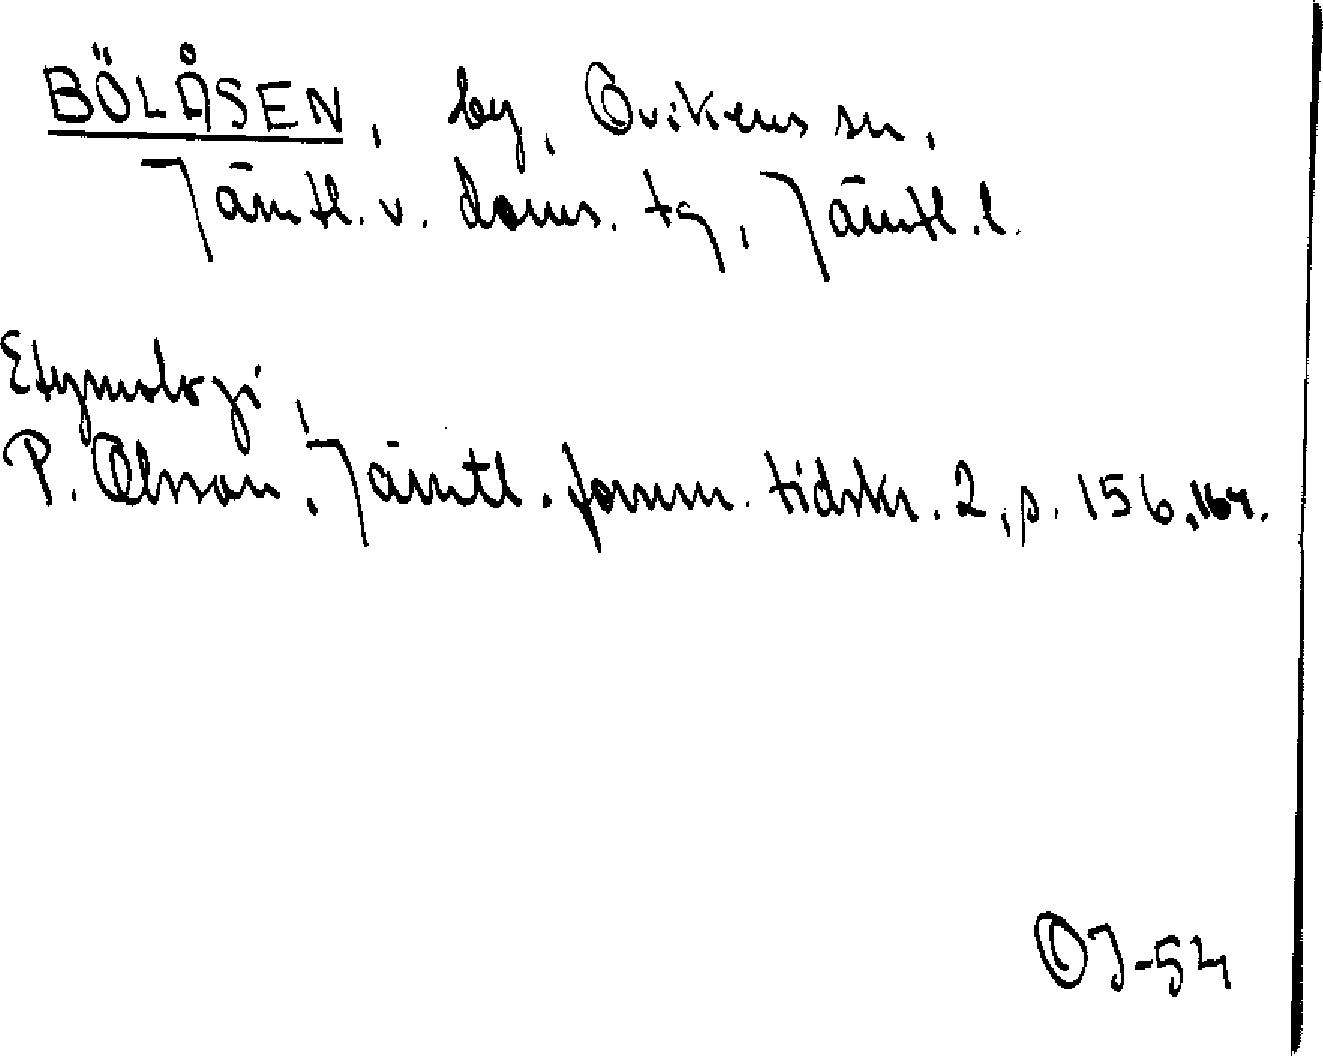 BÖLÅSEN, by, Ovikens sn,
Jämtl. v. doms. tg, Jämtl. l.
Etymologi,
P. Olsson, Jämtl. fornm. tidskr. 2, p. 156, 164.
OJ-54